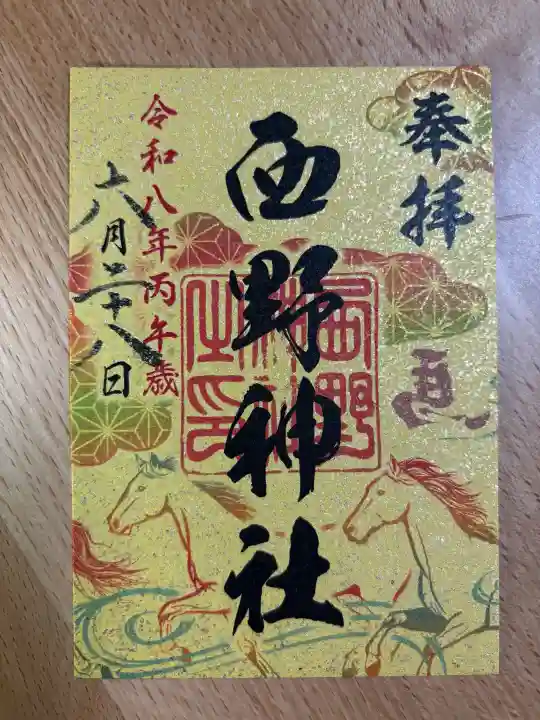 奉拝
西野神社
西野神社之印
令和八年丙午歳
六月二十八日